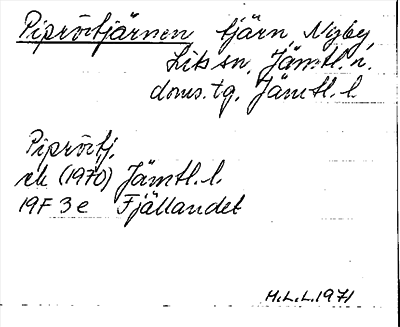 Piprörtjärnen tjärn, Nyby,
Lits sn, Jämtl. n.
doms. tg, Jämtl. l
Piprörtj.
ek (1970) Jämtl. l.
19F 3e Fjällandet
H.L.L. 1971